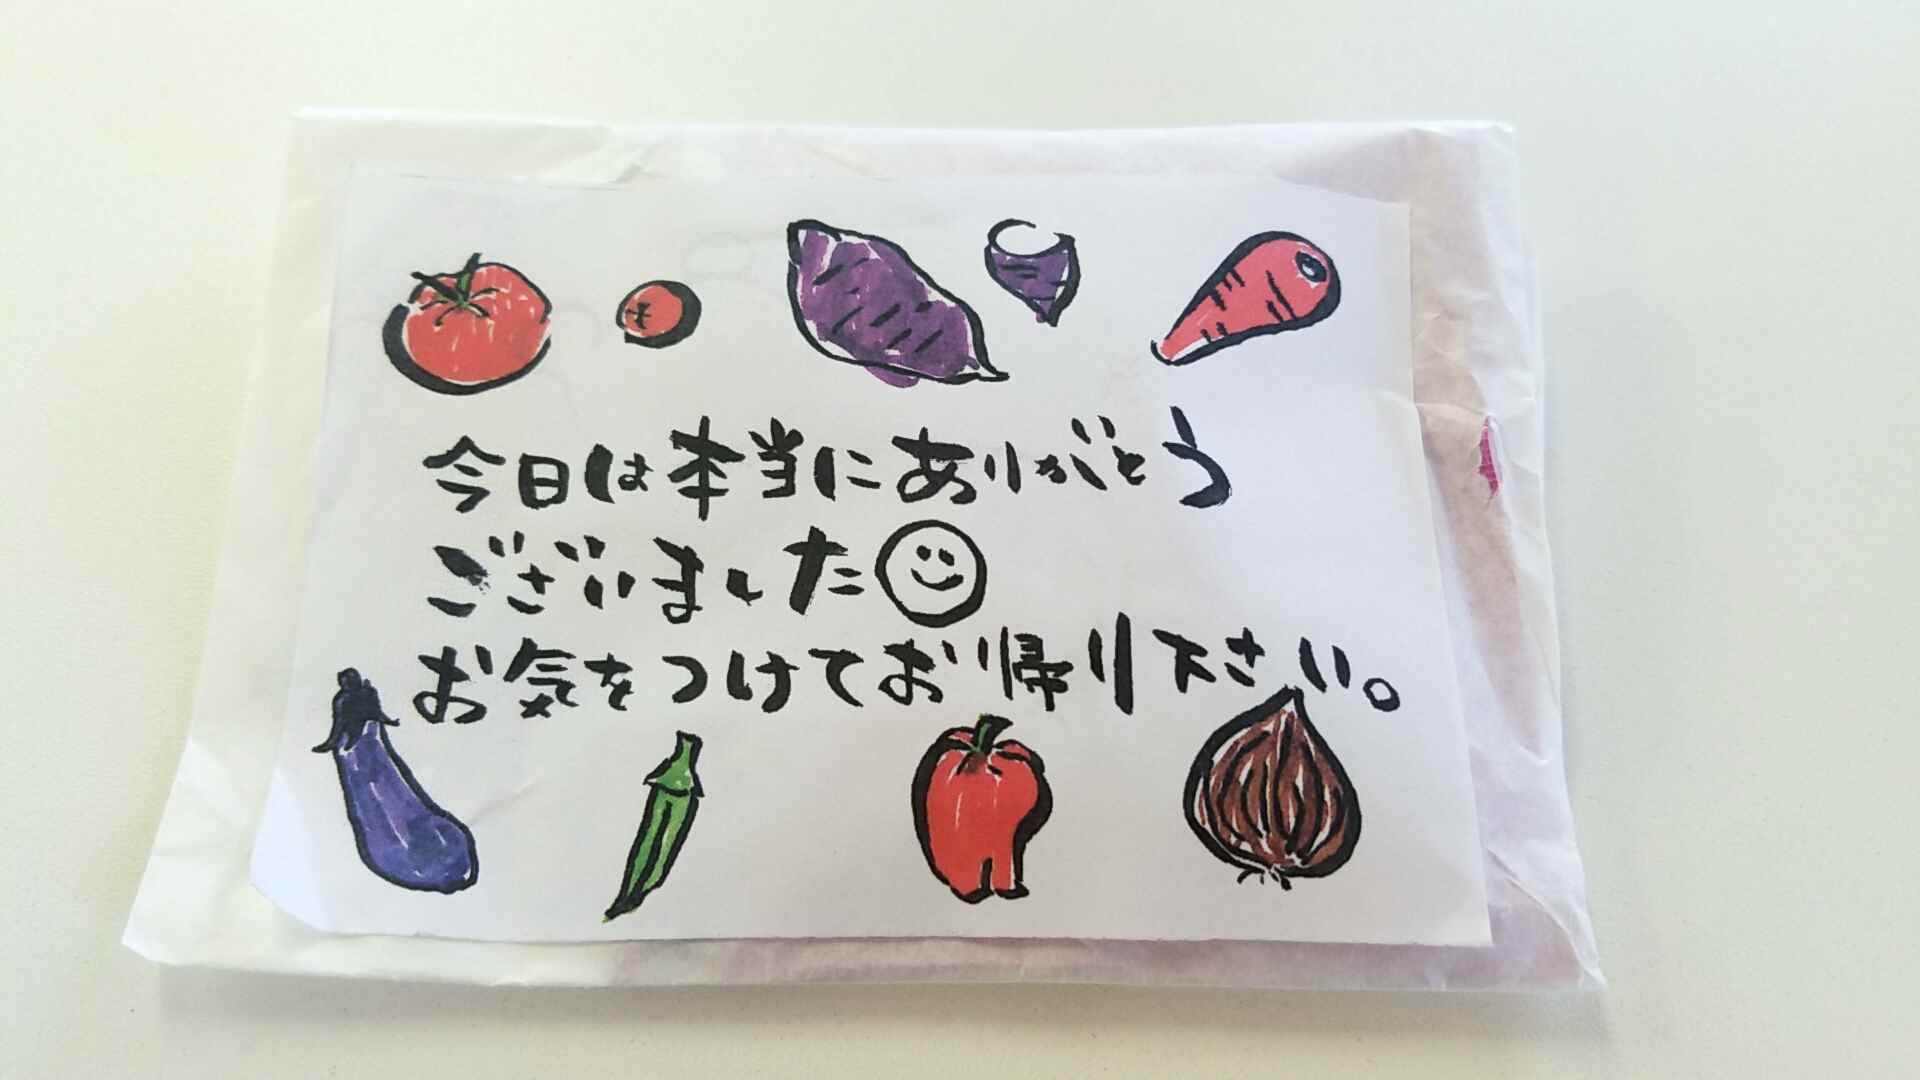 今日は本当にありがとう
ございました
お気をつけてお帰り下さい。